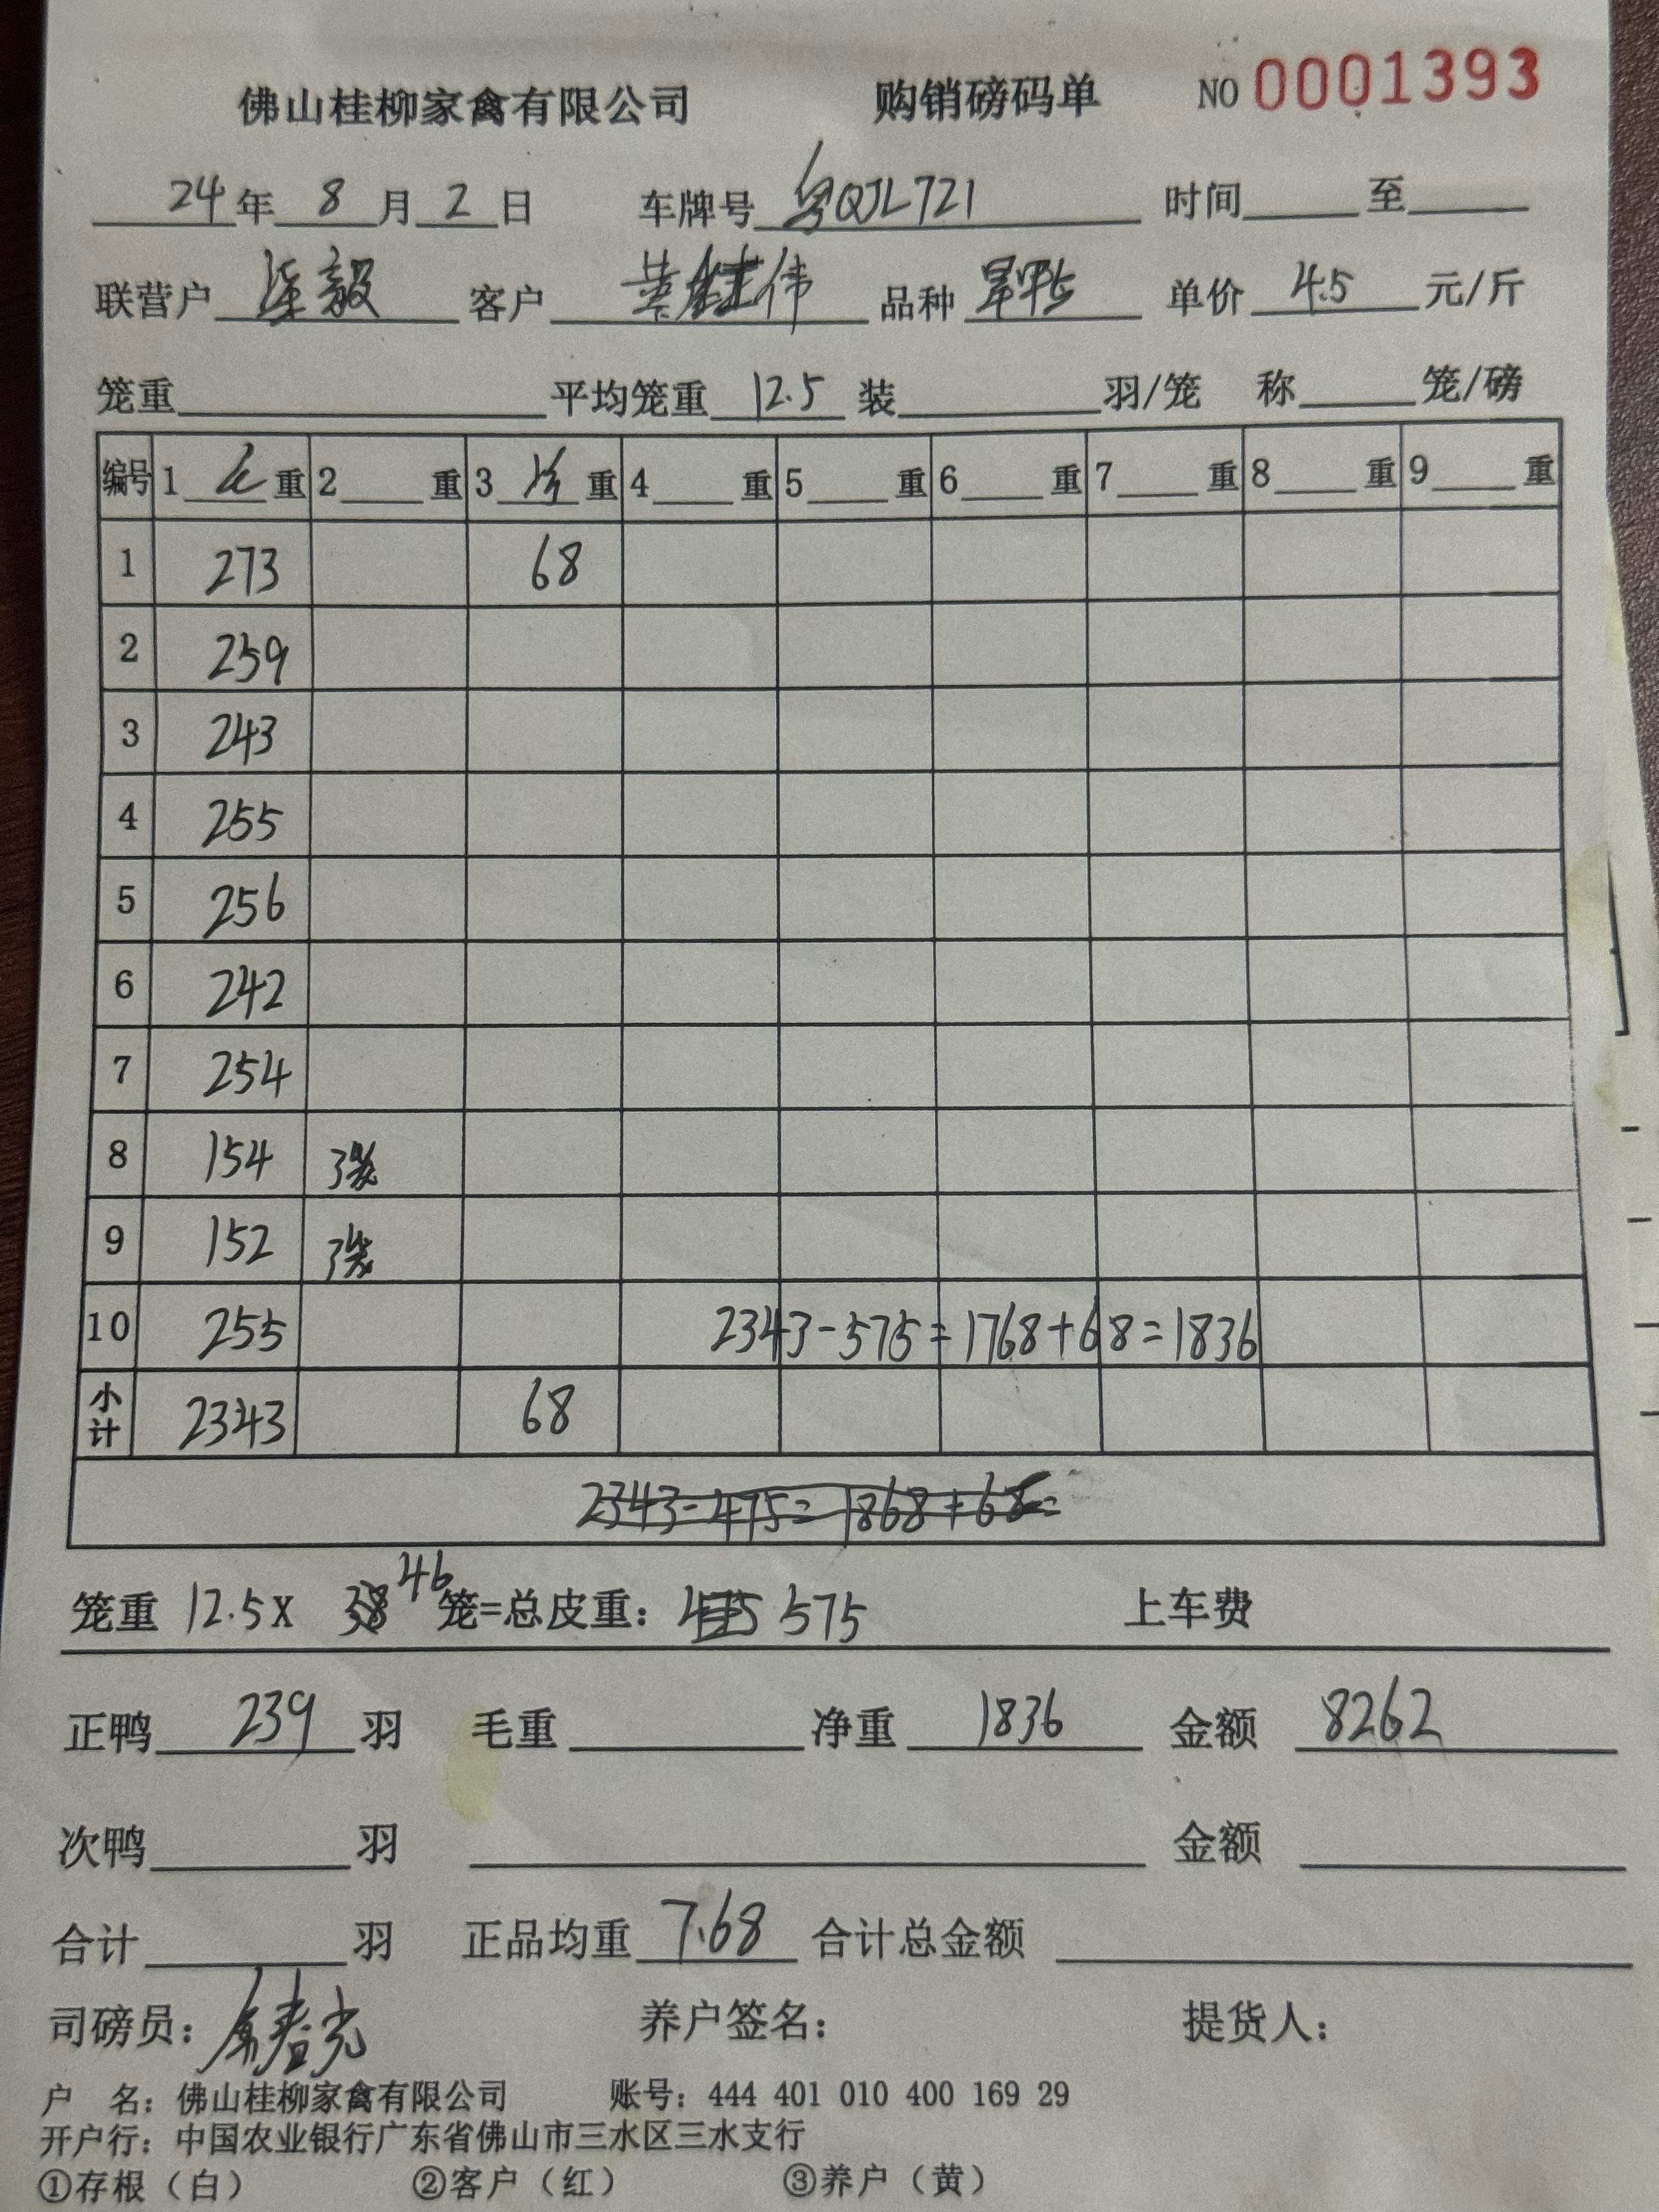 佛山桂柳家禽有限公司 购销磅码单 NO 0001393
24年 8月 2日 车牌号 粤QJL721 时间 至
联营户 连毅 客户 黄 伟 品种 旱鸭 单价 4.5 元/斤
笼重 平均笼重 12.5 装 羽/笼 称 笼/磅
编号 1 毛 重 2 重 3 净 重 4 重 5 重 6 重 7 重 8 重 9 重
1 273 68
2 259
3 243
4 255
5 256
6 242
7 254
8 154 3笼
9 152 3笼
10 255 2343-575=1768+68=1836
小计 2343 68
2343-475=1868+68=
笼重 12.5X 38 46 笼=总皮重: 475 575 上车费
正鸭 239 羽 毛重 净重 1836 金额 8262
次鸭 羽 金额
合计 羽 正品均重 7.68 合计总金额
司磅员: 养户签名: 提货人:
户 名: 佛山桂柳家禽有限公司 账号: 444 401 010 400 169 29
开户行: 中国农业银行广东省佛山市三水区三水支行
①存根（白） ②客户（红） ③养户（黄）